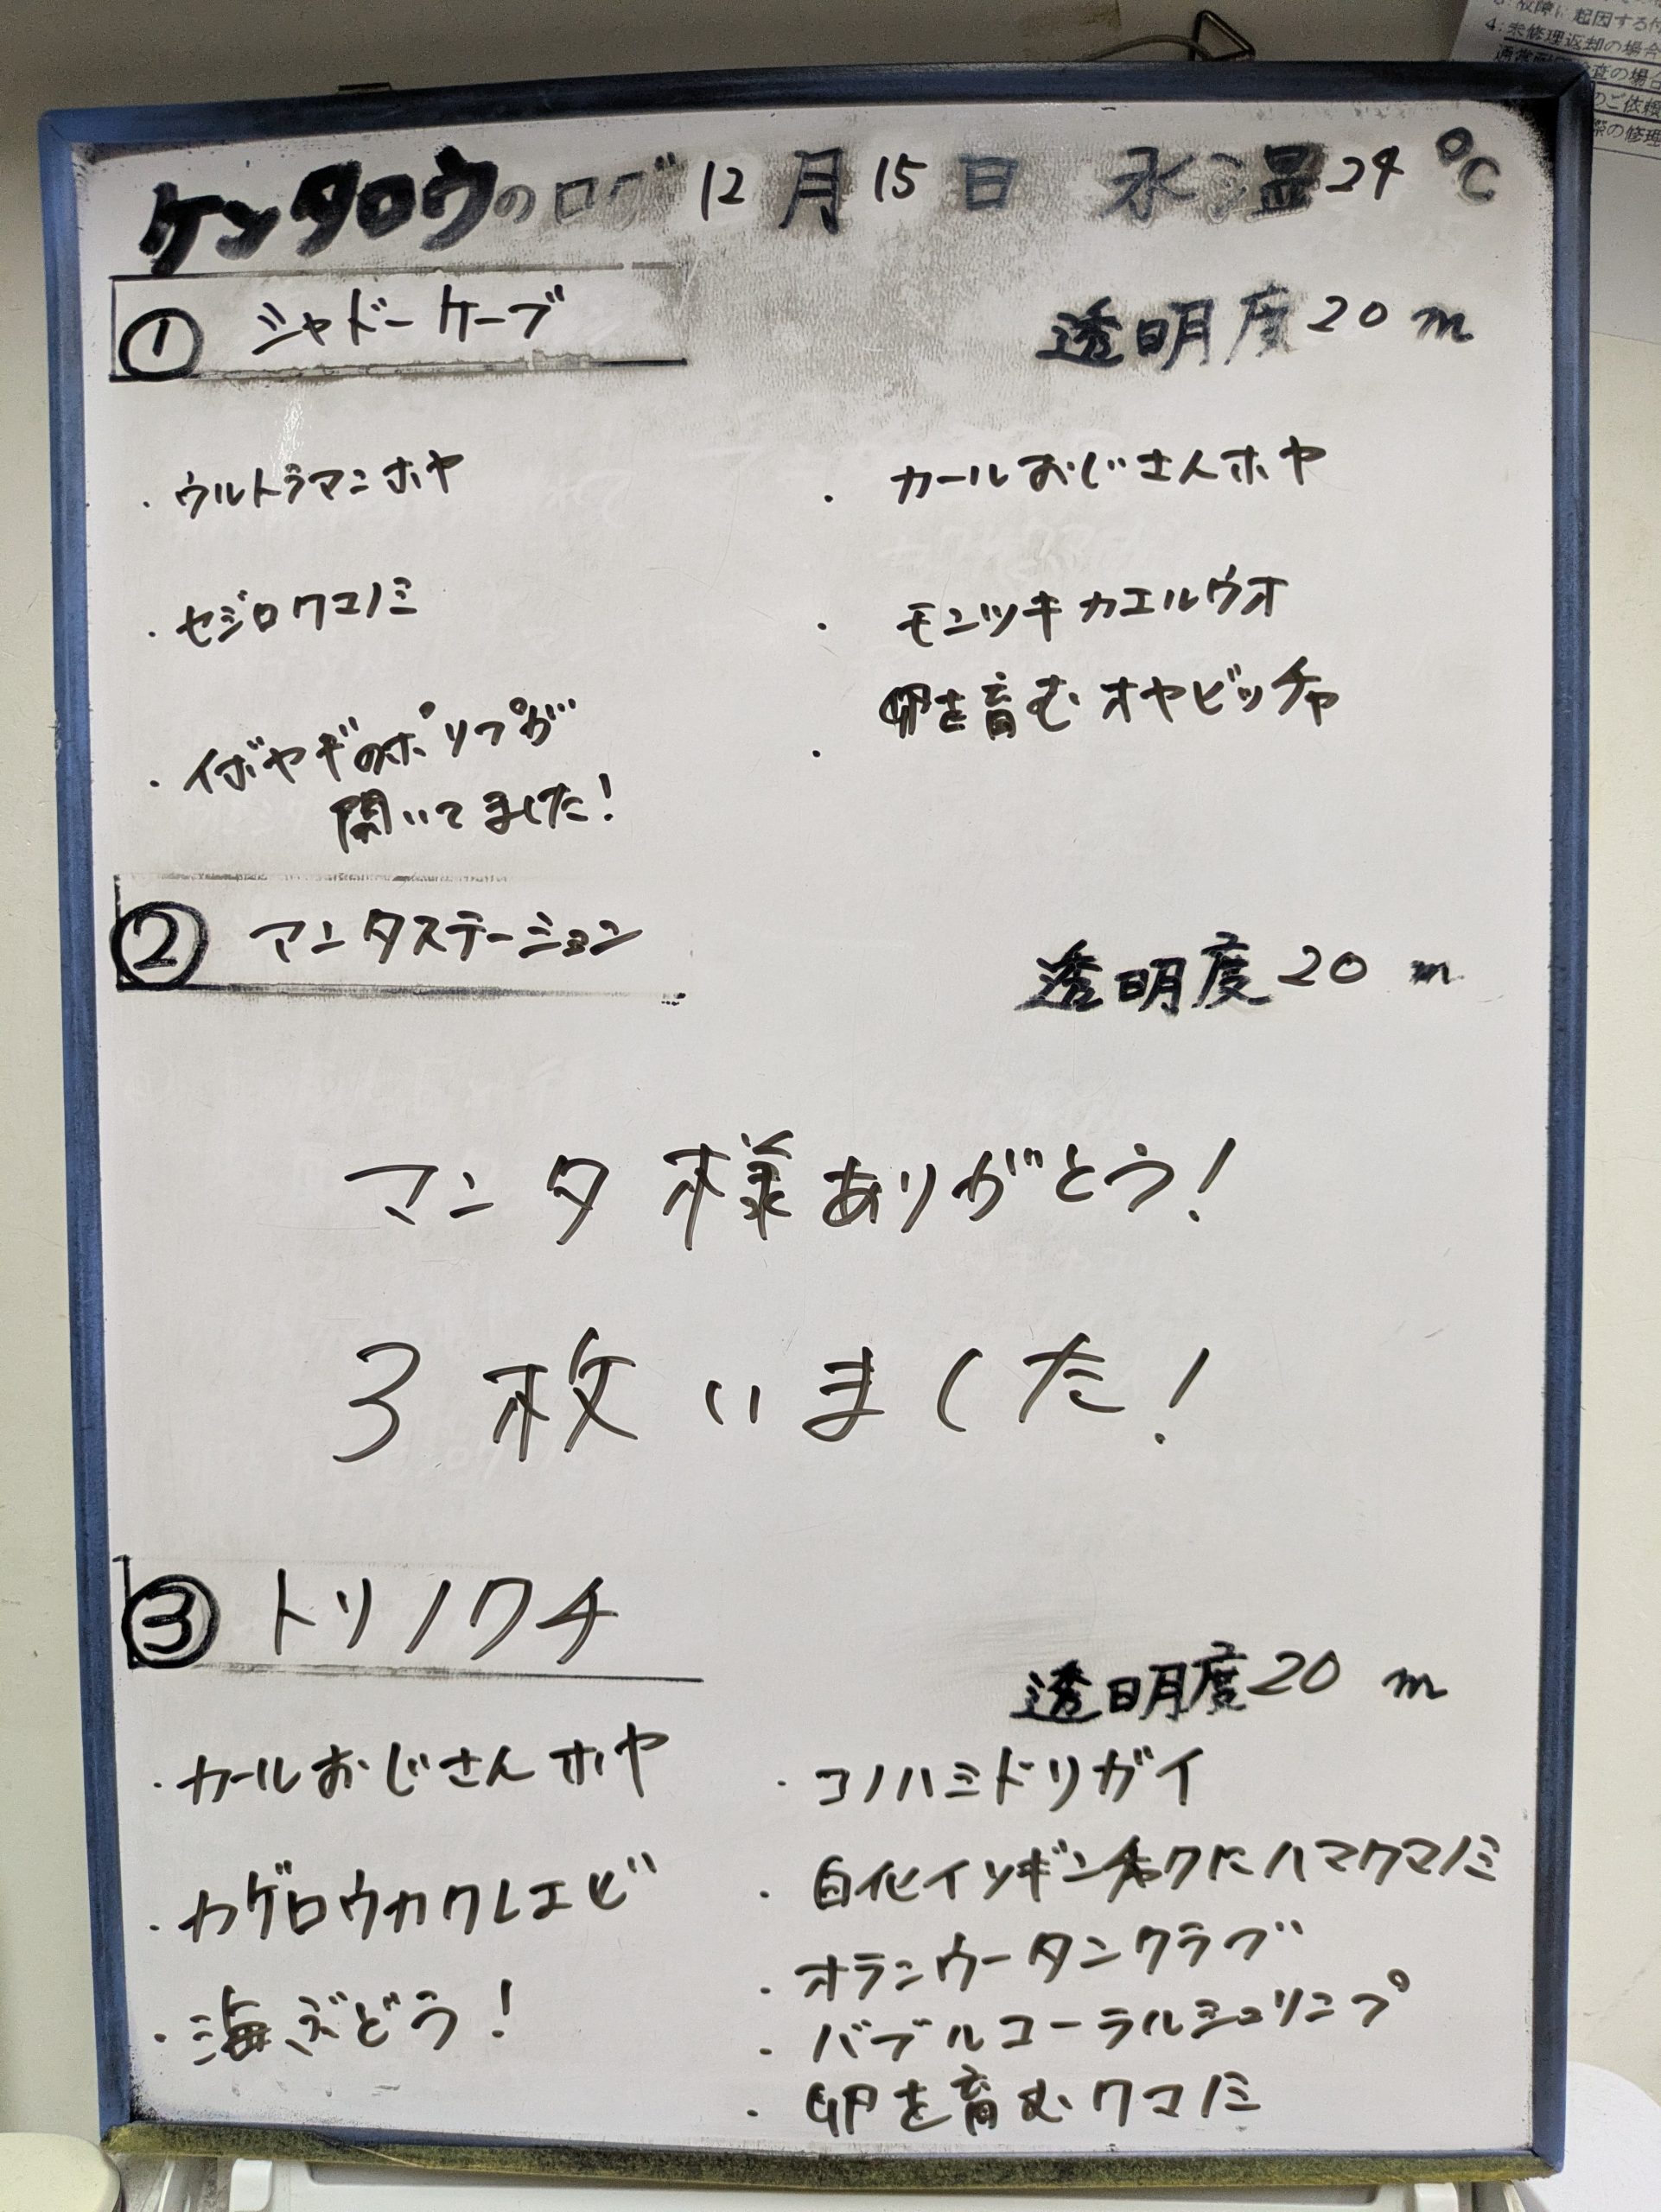 ケンタロウのログ 12月15日 水温24℃
① シャドーケーブ 透明度20m
・ウルトラマンホヤ
・セジロクマノミ
・イボヤギのポリプが
開いてました!
・カールおじさんホヤ
・モンツキカエルウオ
・卵を育むオヤビッチャ
② マンタステーション 透明度20m
マンタ様ありがとう!
3枚いました!
③ トリノクチ
透明度20m
・カールおじさんホヤ
・カゲロウカクレエビ
・海ぶどう!
・コノハミドリガイ
・白化イソギンチャクにハマクマノミ
・オランウータンクラブ
・バブルコーラルシュリンプ
・卵を育むクマノミ
起因する
4:未修理返却の場合
査の場合
のご依頼
際の修理